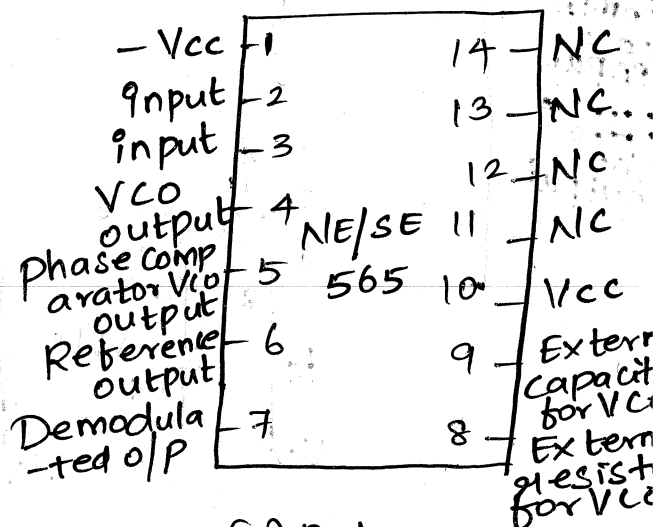 - Vcc 1
input 2
input 3
VCO
output 4
Phase comp
arator VCO 5
output
Reference 6
output
Demodula 7
-ted o/p
NE/SE
565
14 NC
13 NC
12 NC
11 NC
10 Vcc
9 Extern
capacit
for VC
8 Extern
resist
for VC